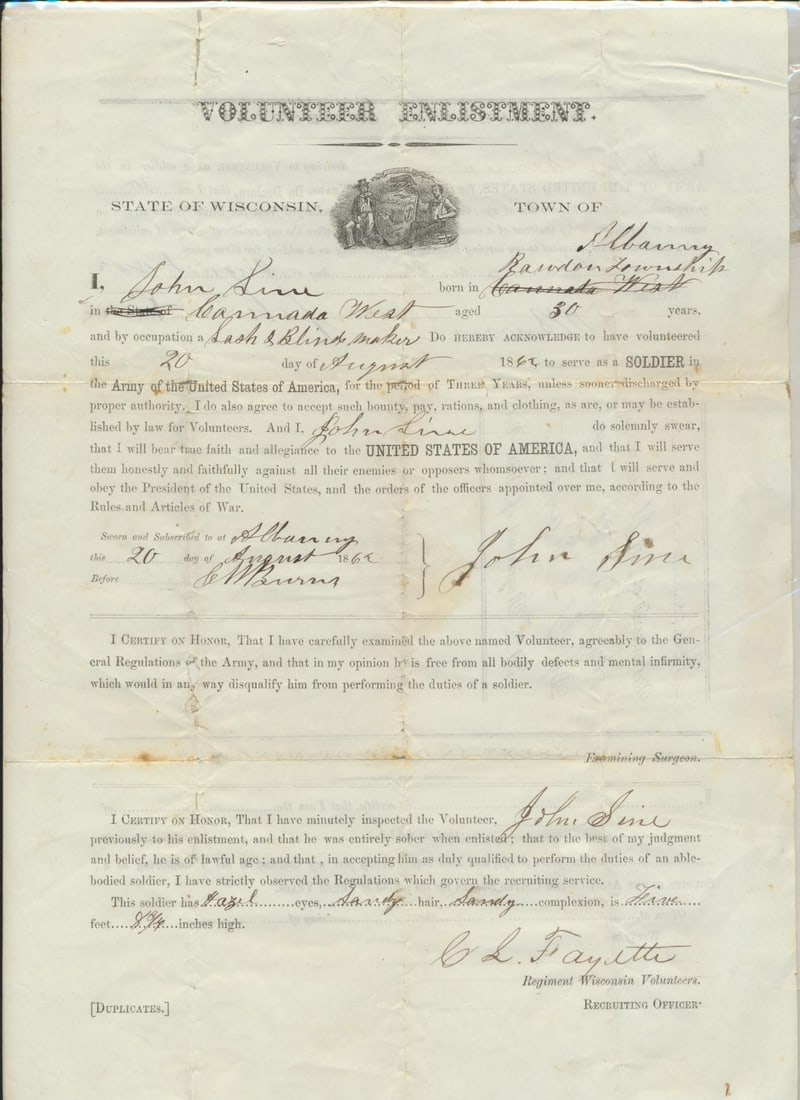 VOLUNTEER ENLISTMENT.
STATE OF WISCONSIN, TOWN OF
Albanny
Rawdon Township
I, John Sine born in Cannada West
in the State of Cannada West aged 30 years,
and by occupation a Sash & Blinds maker DO HEREBY ACKNOWLEDGE to have volunteered
this 20 day of August 1862 to serve as a SOLDIER in
the Army of the United States of America, for the period of THREE YEARS, unless sooner discharged by
proper authority. I do also agree to accept such bounty, pay, rations, and clothing, as are, or may be estab-
lished by law for Volunteers. And I, John Sine do solemnly swear,
that I will bear true faith and allegiance to the UNITED STATES OF AMERICA, and that I will serve
them honestly and faithfully against all their enemies or opposers whomsoever; and that I will serve and
obey the President of the United States, and the orders of the officers appointed over me, according to the
Rules and Articles of War.
Sworn and Subscribed to at Albanny
this 20 day of August 1862 John Sine
Before Burns
I CERTIFY ON HONOR, That I have carefully examined the above named Volunteer, agreeably to the Gen-
eral Regulations of the Army, and that in my opinion he is free from all bodily defects and mental infirmity,
which would in any way disqualify him from performing the duties of a soldier.
Examining Surgeon.
I CERTIFY ON HONOR, That I have minutely inspected the Volunteer, John Sine
previously to his enlistment, and that he was entirely sober when enlisted; that to the best of my judgment
and belief, he is of lawful age; and that , in accepting him as duly qualified to perform the duties of an able-
bodied soldier, I have strictly observed the Regulations which govern the recruiting service.
This soldier has Hazel eyes, Sandy hair, Sandy complexion, is Five
feet 8 3/4 inches high.
C L. Fayette
Regiment Wisconsin Volunteers.
[DUPLICATES.] RECRUITING OFFICER.
1